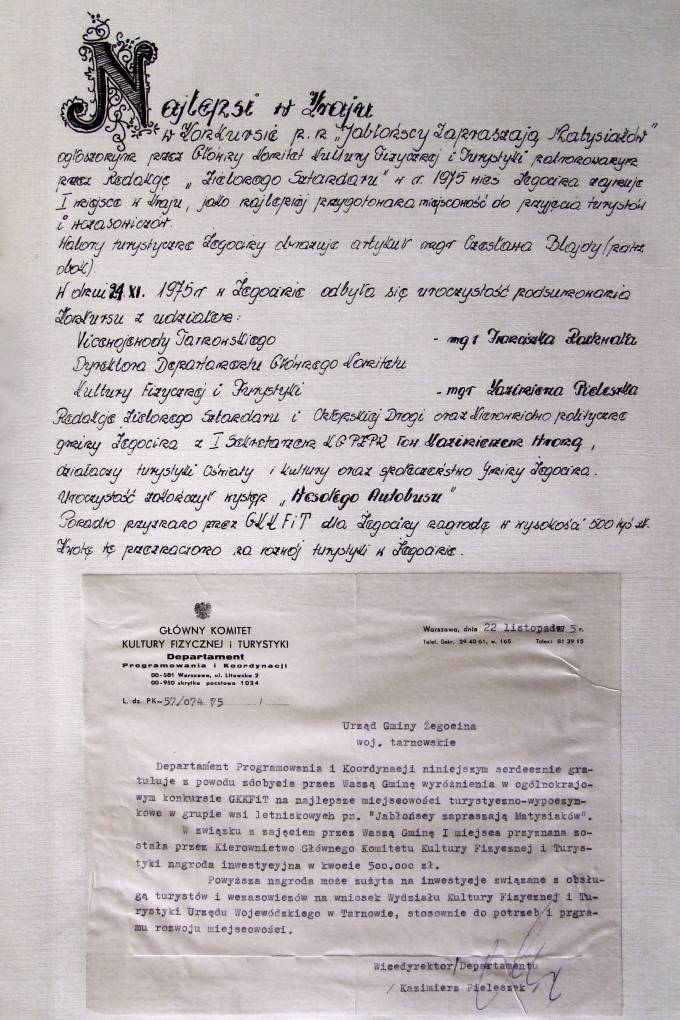 Najlepsi w Kraju
w Konkursie p.n. „Jabłońscy Zapraszają Matysiaków”
ogłoszonym przez Główny Komitet Kultury Fizycznej i Turystyki patronowanym
przez Redakcję „Zielonego Sztandaru” w r. 1975 wieś Żegocina zajmuje
I miejsce w Kraju, jako najlepiej przygotowana miejscowość do przyjęcia turystów
i wczasowiczów.
Walory turystyczne Żegociny obrazuje artykuł mgr Czesława Blajdy (patrz
obok).
W dniu 24 XI. 1975 r w Żegocinie odbyła się uroczystość podsumowania
Konkursu z udziałem:
Vicewojewody Tarnowskiego - mgr Franciszka
Dyrektora Departamentu Głównego Komitetu
Kultury Fizycznej i Turystyki - mgr Kazimierza Pieleszka
Redakcje Zielonego Sztandaru i Chłopskiej Drogi oraz Kierownictwo polityczne
gminy Żegocina z I Sekretarzem KG PZPR tow Kazimierzem
działaczy turystyki Oświaty i kultury oraz społeczeństwo Gminy Żegocina.
Uroczystość zakończył występ „Wesołego Autobusu”
Ponadto przyznano przez GKKFiT dla Żegociny nagrodę w wysokości 500 tyś zł.
Kwotę tę przeznaczono na rozwój turystyki w Żegocinie.
GŁÓWNY KOMITET
KULTURY FIZYCZNEJ i TURYSTYKI
Departament
Programowania i Koordynacji
00-581 Warszawa, ul. Litewska 2
00-950 skrytka pocztowa 1024
L. dz. PK-57/074 75 /
Warszawa, dnia 22 listopada 75 r.
Telef. Sekr. 29 40 61, w. 165 Telex: 81 39 15
Urząd Gminy Żegocina
woj. tarnowskie
Departament Programowania i Koordynacji niniejszym serdecznie gra-
tuluje z powodu zdobycia przez Waszą Gminę wyróżnienia w ogólnokrajo-
wym konkursie GKKFiT na najlepsze miejscowości turystyczno-wypoczyn-
kowe w grupie wsi letniskowych pn. "Jabłońscy zapraszają Matysiaków".
W związku z zajęciem przez Waszą Gminę I miejsca przyznana zo-
stała przez Kierownictwo Głównego Komitetu Kultury Fizycznej i Turys-
tyki nagroda inwestycyjna w kwocie 500.000 zł.
Powyższa nagroda może zużyta na inwestycje związane z obsłu-
gą turystów i wczasowiczów na wniosek Wydziału Kultury Fizycznej i Tu-
rystyki Urzędu Wojewódzkiego w Tarnowie, stosownie do potrzeb i prgra-
mu rozwoju miejscowości.
Wicedyrektor Departamentu
/ Kazimierz Pieleszek